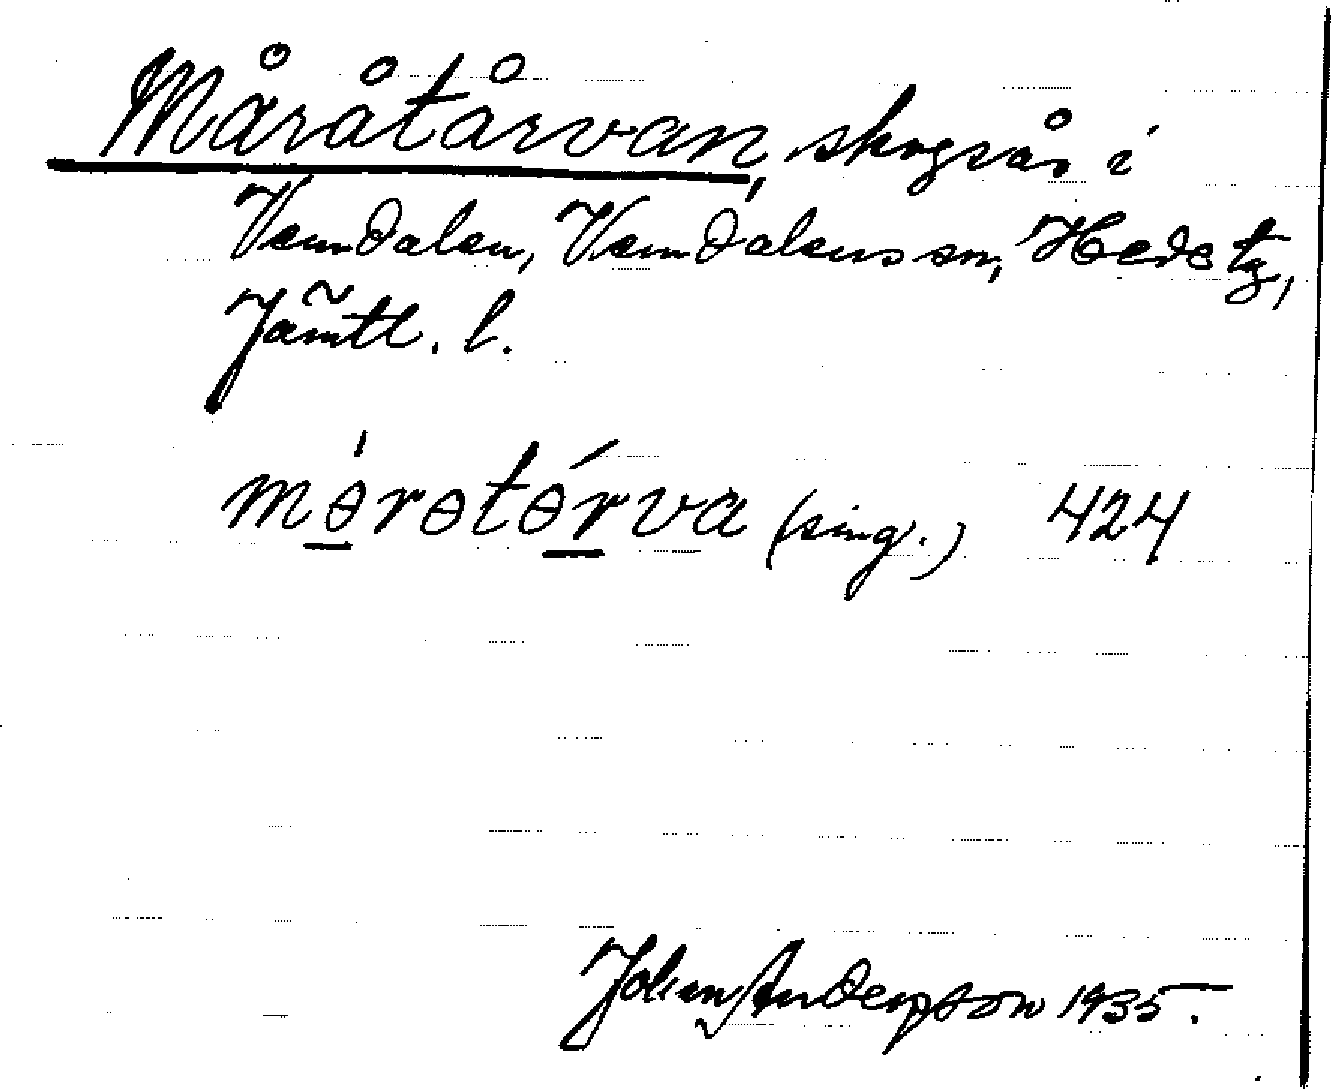 Måråtårvan, skogsås i
Vemdalen, Vemdalens sn, Hede tg,
Jämtl. l.
mɵ́rɵtɵ́rva (sing.) 424
Johan Anderson 1935.